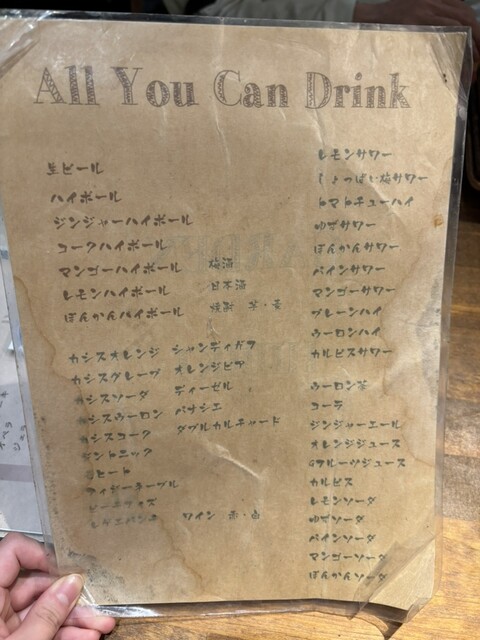 All You Can Drink
生ビール
ハイボール
ジンジャーハイボール
コークハイボール
マンゴーハイボール
レモンハイボール
ぽんかんハイボール
梅酒
日本酒
焼酎 芋・麦
カシスオレンジ
カシスグレープ
カシスソーダ
カシスウーロン
カシスコーク
ジントニック
シャンディガフ
オレンジビア
ディーゼル
パナシェ
ダブルカルチャード
ワイン 赤・白
レモンサワー
しょっぱい梅サワー
トマトチューハイ
ゆずサワー
ぽんかんサワー
パインサワー
マンゴーサワー
プレーンハイ
ウーロンハイ
カルピスサワー
ウーロン茶
コーラ
ジンジャーエール
オレンジジュース
Gフルーツジュース
カルピス
レモンソーダ
ゆずソーダ
パインソーダ
マンゴーソーダ
ぽんかんソーダ